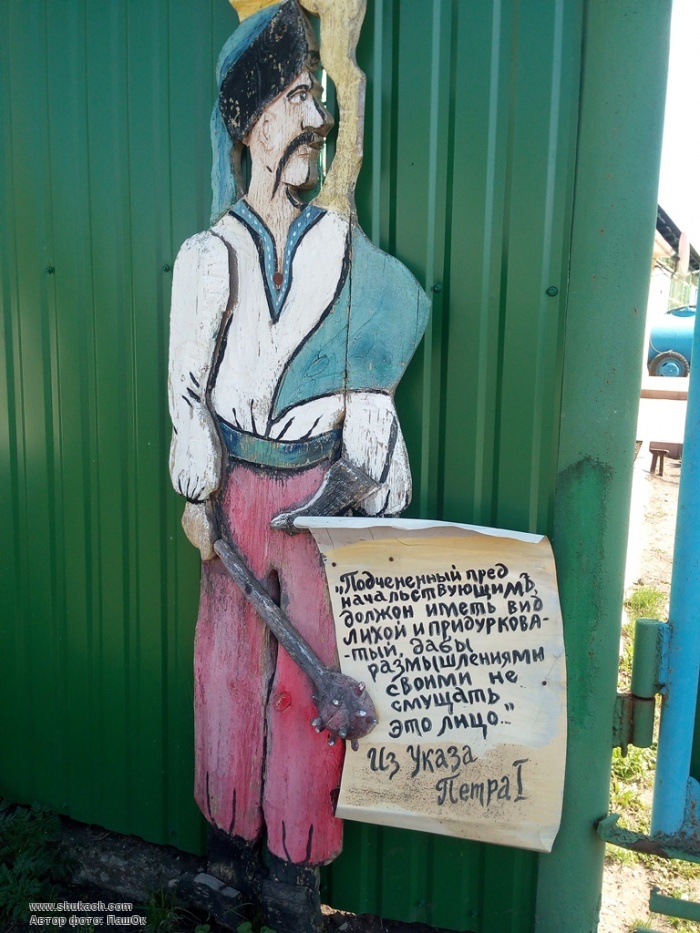 „Подчененный пред
начальствующимъ,
должон иметь вид
лихой и придуркова-
-тый, дабы
размышлениями
своими не
смущать
это лицо..."
Из Указа
Петра I
www.shukach.com
Автор фото: ПашОк